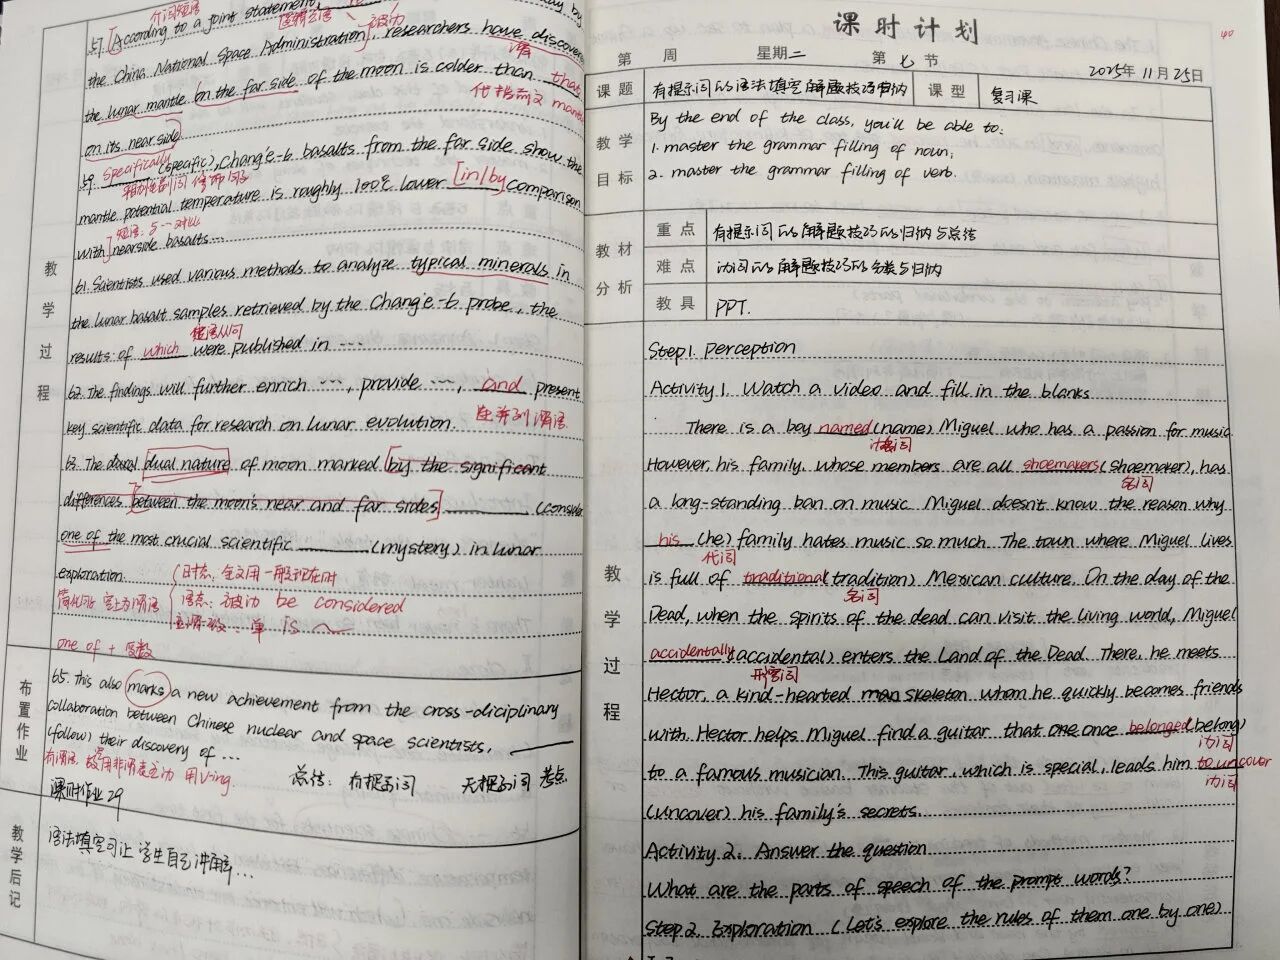 介词短语
57. [According to a joint statement, by
the China National Space Administration], researchers have discovered
that
the lunar mantle on the far side of the moon is colder than
代指前文 mantle
on its near side
59. specifically (specific), Chang'e-6 basalts from the far side show the
副词 修饰句子
mantle potential temperature is roughly 100℃ lower [in/by comparison
短语: 与…对比
with] nearside basalts...
61. Scientists used various methods to analyze typical minerals in
the lunar basalt samples retrieved by the Chang'e-6 probe, the
定语从句
results of which were published in ...
62. The findings will further enrich ..., provide ..., and present
key scientific data for research on lunar evolution.
并列谓语
63. The dual nature of moon marked [by the significant
differences [between the moon's near and far sides] (consider
one of the most crucial scientific (mystery) in lunar
exploration
时态: 全文用一般现在时
语态: 被动 be considered
主谓一致: 单 is
one of + 复数
布置作业
65. This also marks a new achievement from the cross-diciplinary
collaboration between Chinese nuclear and space scientists,
(follow) their discovery of ...
有谓语, 故用非谓语表主动 用Ving.
总结: 有提示词 无提示词 考点
课时作业29
教学后记
语法填空可让学生自己讲解...
教学过程
课时计划
40
第 周 星期二 第 七 节 2025年 11月 25日
课题 有提示词的语法填空解题技巧归纳 课型 复习课
教学目标
By the end of the class, you'll be able to:
1. master the grammar filling of noun;
2. master the grammar filling of verb.
教材分析
重点 有提示词的解题技巧的归纳与总结
难点 动词的解题技巧的分类与归纳
教具 PPT.
教学过程
Step 1. Perception
Activity 1. Watch a video and fill in the blanks
There is a boy named (name) Miguel who has a passion for music
动词
However, his family, whose members are all shoemakers (shoemaker), has
名词
a long-standing ban on music. Miguel doesn't know the reason why
his (he) family hates music so much. The town where Miguel lives
代词
is full of traditional (tradition) Mexican culture. On the day of the
名词
Dead, when the spirits of the dead can visit the living world, Miguel
accidentally (accidental) enters the Land of the Dead. There, he meets
形容词
Hector, a kind-hearted man skeleton whom he quickly becomes friends
with. Hector helps Miguel find a guitar that one once belonged (belong)
动词
to a famous musician. This guitar, which is special, leads him to uncover
动词
(uncover) his family's secrets.
Activity 2. Answer the question
What are the parts of speech of the prompt words?
Step 2. Exploration (Let's explore the rules of them one by one)